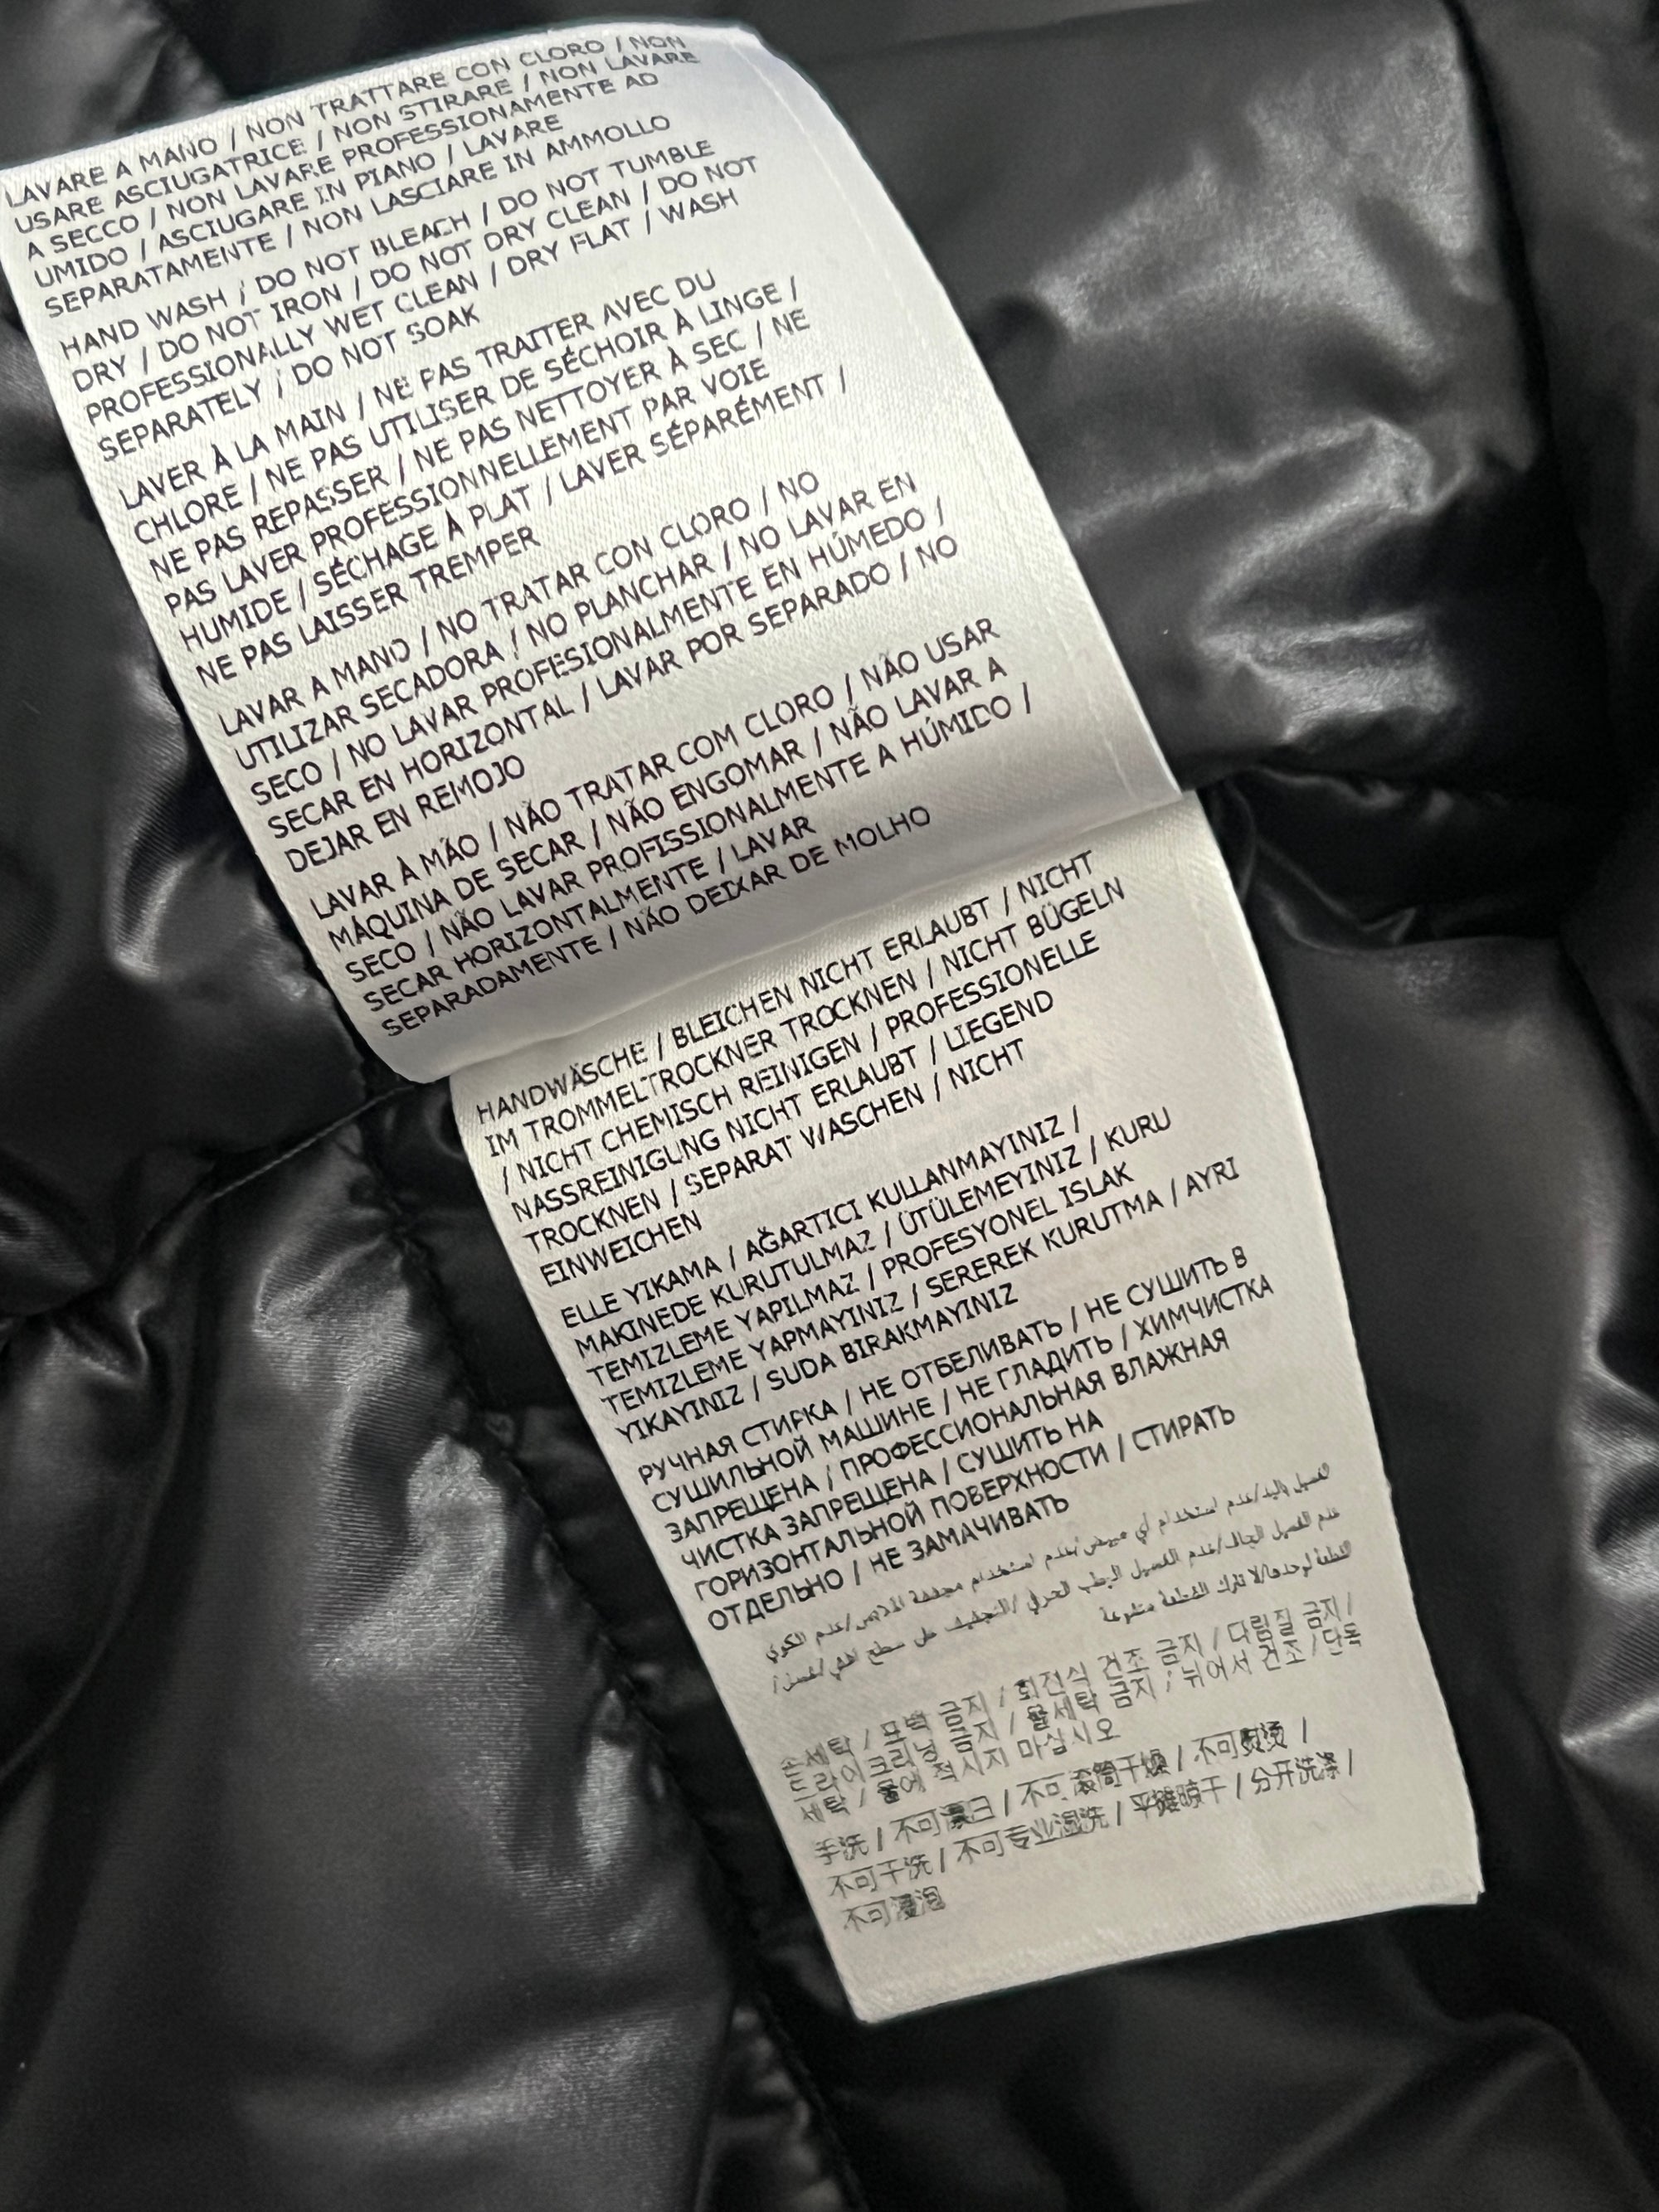 LAVARE A MANO / NON TRATTARE CON CLORO / NON
USARE ASCIUGATRICE / NON STIRARE / NON LAVARE
A SECCO / NON LAVARE PROFESSIONAMENTE AD
UMIDO / ASCIUGARE IN PIANO / LAVARE
SEPARATAMENTE / NON LASCIARE IN AMMOLLO
HAND WASH / DO NOT BLEACH / DO NOT TUMBLE
DRY / DO NOT IRON / DO NOT DRY CLEAN / DO NOT
PROFESSIONALLY WET CLEAN / DRY FLAT / WASH
SEPARATELY / DO NOT SOAK
LAVER À LA MAIN / NE PAS TRAITER AVEC DU
CHLORE / NE PAS UTILISER DE SÉCHOIR À LINGE /
NE PAS REPASSER / NE PAS NETTOYER À SEC / NE
PAS LAVER PROFESSIONNELLEMENT PAR VOIE
HUMIDE / SÉCHAGE À PLAT / LAVER SÉPARÉMENT /
NE PAS LAISSER TREMPER
LAVAR A MANO / NO TRATAR CON CLORO / NO
UTILIZAR SECADORA / NO PLANCHAR / NO LAVAR EN
SECO / NO LAVAR PROFESIONALMENTE EN HÚMEDO /
SECAR EN HORIZONTAL / LAVAR POR SEPARADO / NO
DEJAR EN REMOJO
LAVAR À MÃO / NÃO TRATAR COM CLORO / NÃO USAR
MÁQUINA DE SECAR / NÃO ENGOMAR / NÃO LAVAR A
SECO / NÃO LAVAR PROFISSIONALMENTE A HÚMIDO /
SECAR HORIZONTALMENTE / LAVAR
SEPARADAMENTE / NÃO DEIXAR DE MOLHO
HANDWÄSCHE / BLEICHEN NICHT ERLAUBT / NICHT
IM TROMMELTROCKNER TROCKNEN / NICHT BÜGELN
/ NICHT CHEMISCH REINIGEN / PROFESSIONELLE
NASSREINIGUNG NICHT ERLAUBT / LIEGEND
TROCKNEN / SEPARAT WASCHEN / NICHT
EINWEICHEN
ELLE YIKAMA / AĞARTICI KULLANMAYINIZ /
MAKINEDE KURUTULMAZ / ÜTÜLEMEYINIZ / KURU
TEMIZLEME YAPILMAZ / PROFESYONEL ISLAK
TEMIZLEME YAPMAYINIZ / SEREREK KURUTMA / AYRI
YIKAYINIZ / SUDA BIRAKMAYINIZ
РУЧНАЯ СТИРКА / НЕ ОТБЕЛИВАТЬ / НЕ СУШИТЬ В
СУШИЛЬНОЙ МАШИНЕ / НЕ ГЛАДИТЬ / ХИМЧИСТКА
ЗАПРЕЩЕНА / ПРОФЕССИОНАЛЬНАЯ ВЛАЖНАЯ
ЧИСТКА ЗАПРЕЩЕНА / СУШИТЬ НА
ГОРИЗОНТАЛЬНОЙ ПОВЕРХНОСТИ / СТИРАТЬ
ОТДЕЛЬНО / НЕ ЗАМАЧИВАТЬ
الغسيل باليد/عدم استخدام أي مبيض/عدم استخدام مجففة الملابس/عدم الكوي
عدم الغسيل الجاف/عدم الغسيل الرطب الحرفي /التجفيف على سطح افقي/غسل/
القطعة لوحدها/لا تترك القطعة منقوعة
손세탁 / 표백 금지 / 회전식 건조 금지 / 다림질 금지 /
드라이 크리닝 금지 / 물세탁 금지 / 뉘어서 건조 / 단독
세탁 / 물에 적시지 마십시오
手洗 / 不可漂白 / 不可滚筒干燥 / 不可熨烫 /
不可干洗 / 不可专业湿洗 / 平摊晾干 / 分开洗涤 /
不可浸泡